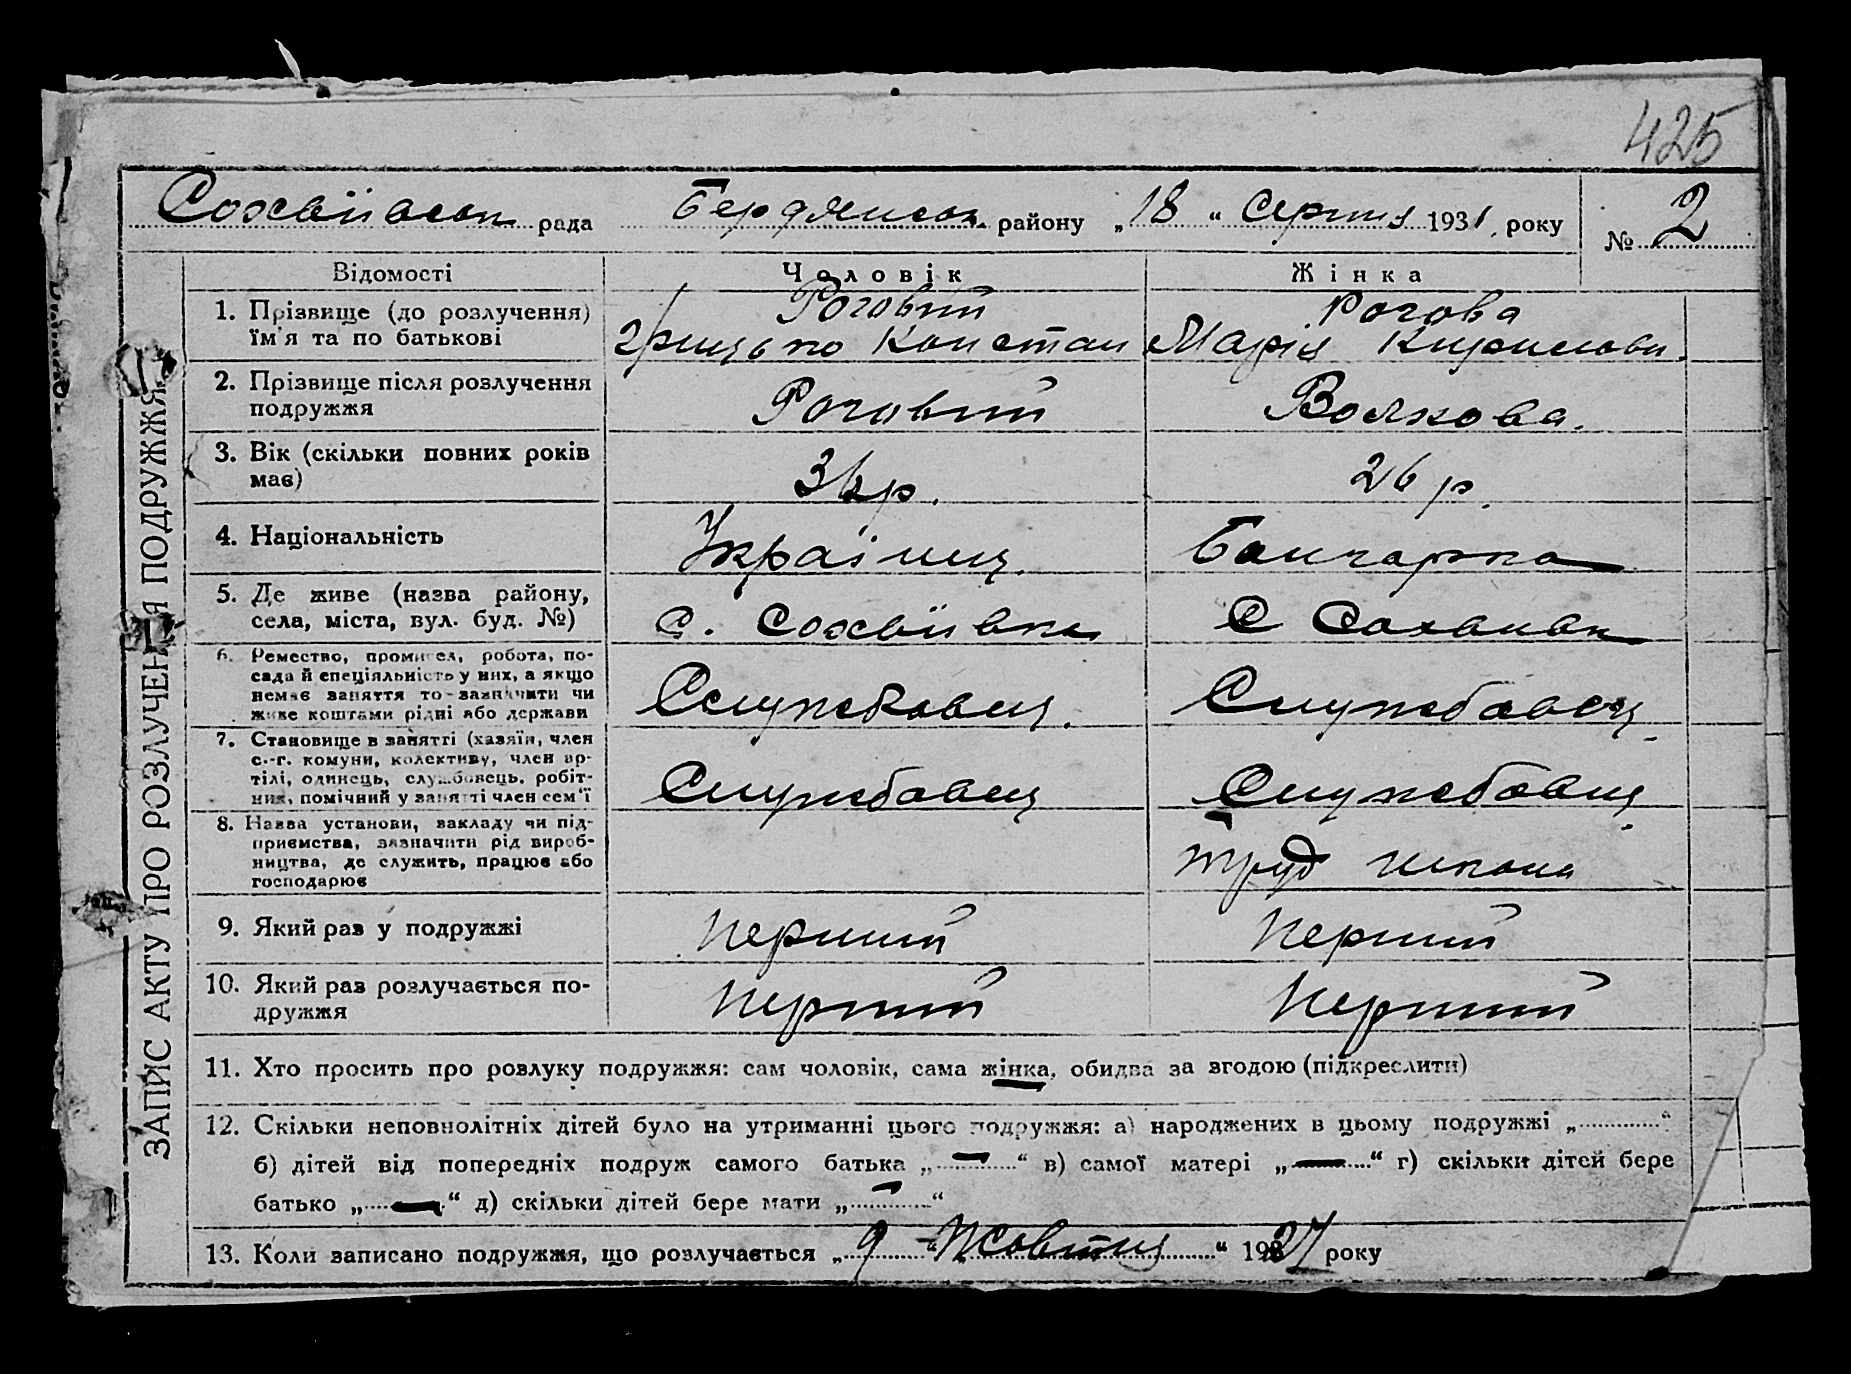 425
Софіївськ рада Бердянськ району „18“ Серпня 1931 року № 2
ЗАПИС АКТУ ПРО РОЗЛУЧЕННЯ ПОДРУЖЖЯ
Відомості Чоловік Жінка
1. Прізвище (до розлучення) Роговий Рогова
ім'я та по батькові Грицько Констан Марія Кирилова
2. Прізвище після розлучення
подружжя Роговий Волкова.
3. Вік (скільки повних років
має) 36 р. 26 р.
4. Національність Українц. Болгарка
5. Де живе (назва району,
села, міста, вул. буд. №) с. Софіївка С
6. Ремество, промисел, робота, по-
сада й спеціяльність у них, а якщо
немає заняття то зазначити чи
живе коштами рідні або держави Службовец. Службовец
7. Становище в занятті (хазяїн, член
с.-г. комуни, колективу, член ар-
тілі, одинець, службовець, робіт-
ник, помічний у занятті член сем'ї Службовец Службовец
8. Назва установи, закладу чи під-
приємства, зазначити рід вироб-
ництва, де служить, працює або
господарює Труд школа
9. Який раз у подружжі Перший Перший
10. Який раз розлучається по-
дружжя Перший Перший
11. Хто просить про розлуку подружжя: сам чоловік, сама жінка, обидва за згодою (підкреслити)
12. Скільки неповнолітніх дітей було на утриманні цього подружжя: а) народжених в цьому подружжі „............“
б) дітей від попередніх подруж самого батька „—“ в) самої матері „—“ г) скільки дітей бере
батько „—“ д) скільки дітей бере мати „—“
13. Коли записано подружжя, що розлучається „9“ Жовтня“ 1927 року